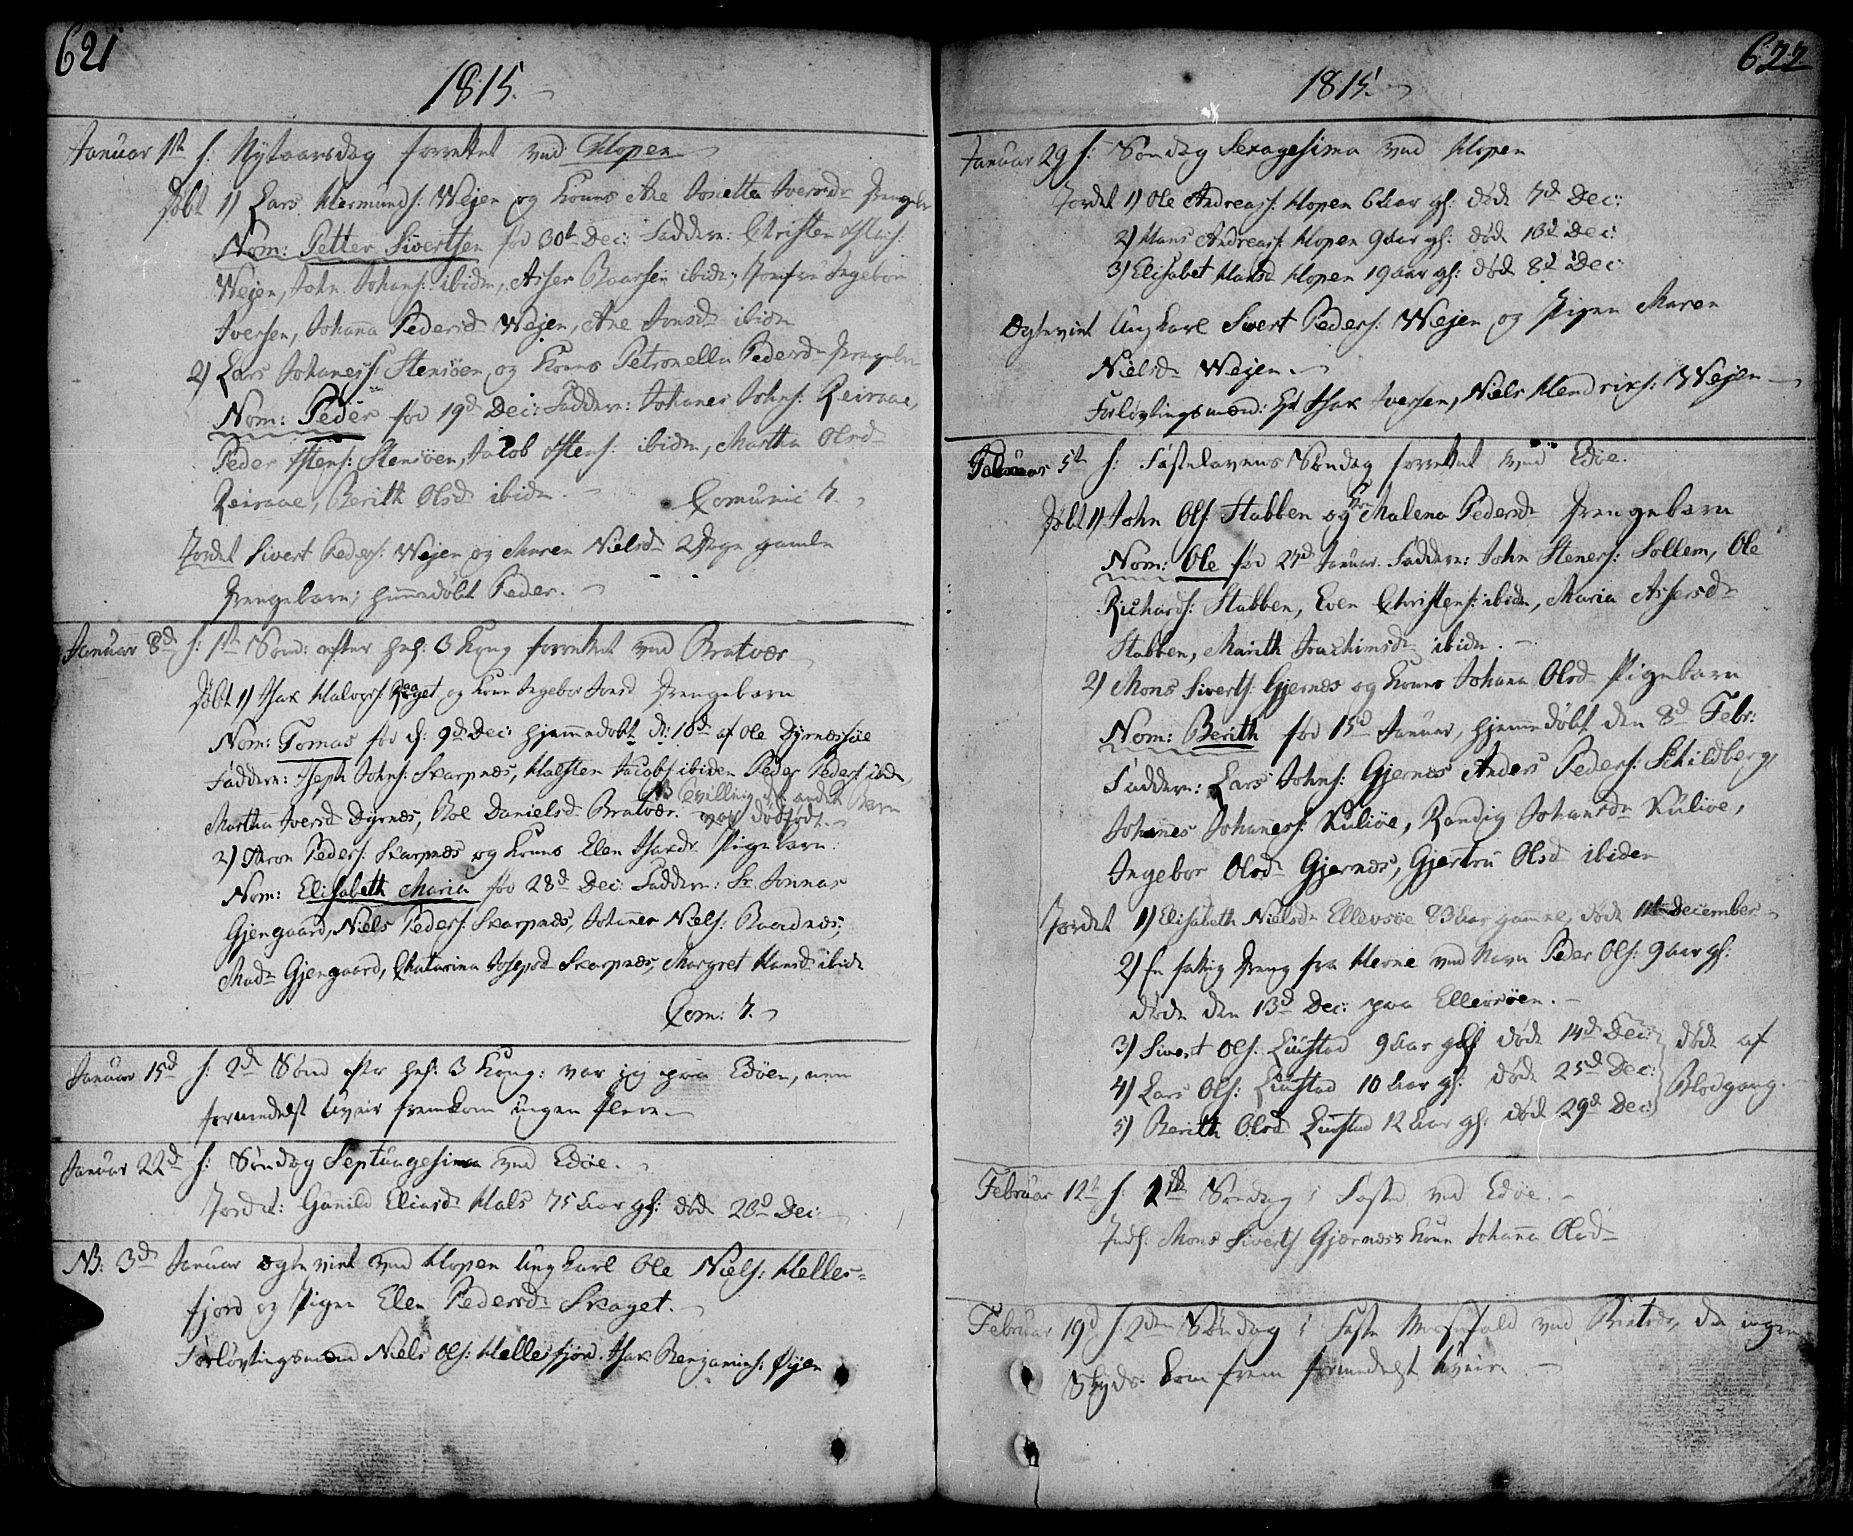 621
1815.
Januar 1st h: Nytaarsdag forrettet ved Hopen
Døbt 1) Lars Hermunds: Wejen og Kones Ane Jonetta Iversdr Drengebr
Nom: Petter Sivertsen fød 30t Dec: Faddere: Christen
Wejen, John Johans: ibidn, Asser Baarsen ibidn, Jomfru Ingebor
Iversen, Johanna Pedersdr Wejen, Ane Jonsdr ibidn
2) Lars Johaness: Stensöen og Kones Petronella Pedersdr Drengebr
Nom: Peder fød 19d Dec: Faddere: Johanes Johns: Reiraae,
Peder Stens: Stensöen, Jacob Stens: ibidn, Martha Olsdr
Reiraae, Berith Olsdr ibidn. Comunic 7.
Jordet Sivert Peders: Wejen og Maren Nielsdr 2 Dage gamle
Drengebarn, hiemmedøbt Peder.
Januar 8d h: 1st Sönd: efter hel: 3 Kong forrettet ved Bratvær
Døbt 1) Isak Halvors: Røget og Kone Ingebor Jonsd Drengebarn
Nom: Tomas fød d: 9d Dec: hjemmedøbt d: 10d af Ole Dyrnæssöe
Faddere: Joseph Johns: Skarpnæs, Halsten Jacobs: ibiden Peder Peders: ibidn,
NB tvilling det andet Barn
Martha Iversd Dyrnæs, Boe Danielsd Bratvær. var dödfödt.
2) Aron Peders: Skarpnæs og Kones Elen Isaksdr Pigebarn.
Nom: Elisabeth Maria fød 28d Dec: Faddere: Sr Jonnas
Gjengaard, Niels Peders: Skarpnæs, Johannes Niels: Baardnæs:
Mad: Gjengaard, Chatarina Josepsd Skarpnæs, Margret Hansd ibidn
Com: 7.
Januar 15d h: 2d Sönd eftr hel: 3 Kong: var jeg paa Edöen, men
formedelst Uveir fremkom ingen flere.
Januar 22d h: Söndag Septuagesima ved Edöe.
Jordet: Gunild Eliasdr Hals 75 Aar gl: død 20d Dec:
NB: 3d Januar ægteviet ved Hopen Ungkarl Ole Niels: Helles=
fjord og Pigen Elen Pedersdr Skaget.
Forløvtingsmænd Niels Ols: Hellesfjord. Isak Benjamins: Øyen
622
1815.
Januar 29 h: Söndag Sexagesima ved Hopen
Jordet 1) Ole Andreass: Hopen 6 Aar gl: døde 7d Dec:
2) Hans Andreass: Hopen 9 Aar gl: døde 10d Dec:
3) Elisabet Hansd Hopen 19 Aar gl: døde 8d Dec:
Ægteviet Ungkarl Sivert Peders: Wejen og Pigen Maren
Nielsdr Wejen.
Forløvtingsmænd: Hr Isak Iversen, Niels Hendriks: Wejen
Februar 5t h: Fastelavens Söndag forrettet ved Edöe.
Døbt 1) John Ols: Stabben og K: Malena Pedersdr Drengebarn
Nom: Ole fød 27d Januar. Faddere: John Steners: Sollem, Ole
Richards: Stabben, Even Christens: ibidn, Maria Assersdr
Stabben, Marith Joachimsdr ibidn.
2) Mons Siverts: Gjernæs og Kones Johana Olsd Pigebarn
Nom: Berith fød 15d Januar, hjemmedøbt den 8d Febr:
Faddere: Lars Johns: Gjernæs Anders Peders: Schildberg,
Johanes Johaness: Kuliöe, Randig Johansdr Kuliöe,
Ingebor Olsdr Gjernæs, Gjertru Olsd ibiden
Jordet 1) Elisabeth Nielsdr Ellevsöe 83 Aar gamel, døde 11t December
2) En fattig Dreng fra Herne ved Navn Peder Ols: 9 Aar gl:
døde den 13d Dec: paa Ellevsöen.
3) Sivert Ols: Liustad 9 Aar gl: døde 14d Dec: døde af
4) Lars Ols: Liustad 10 Aar gl: døde 25d Dec: Blodgang.
5) Berith Olsd Liustad 12 Aar gl: døde 29d Dec:
Februar 12t h: 1st Söndag i Faste ved Edöe.
Indl: Mons Siverts Gjærnæs Kone Johanna Olsd
Februar 19d h: 2den Söndag i Faste Messefald ved Bratvær, da ingen
Skyds kom frem formedelst Uveir.